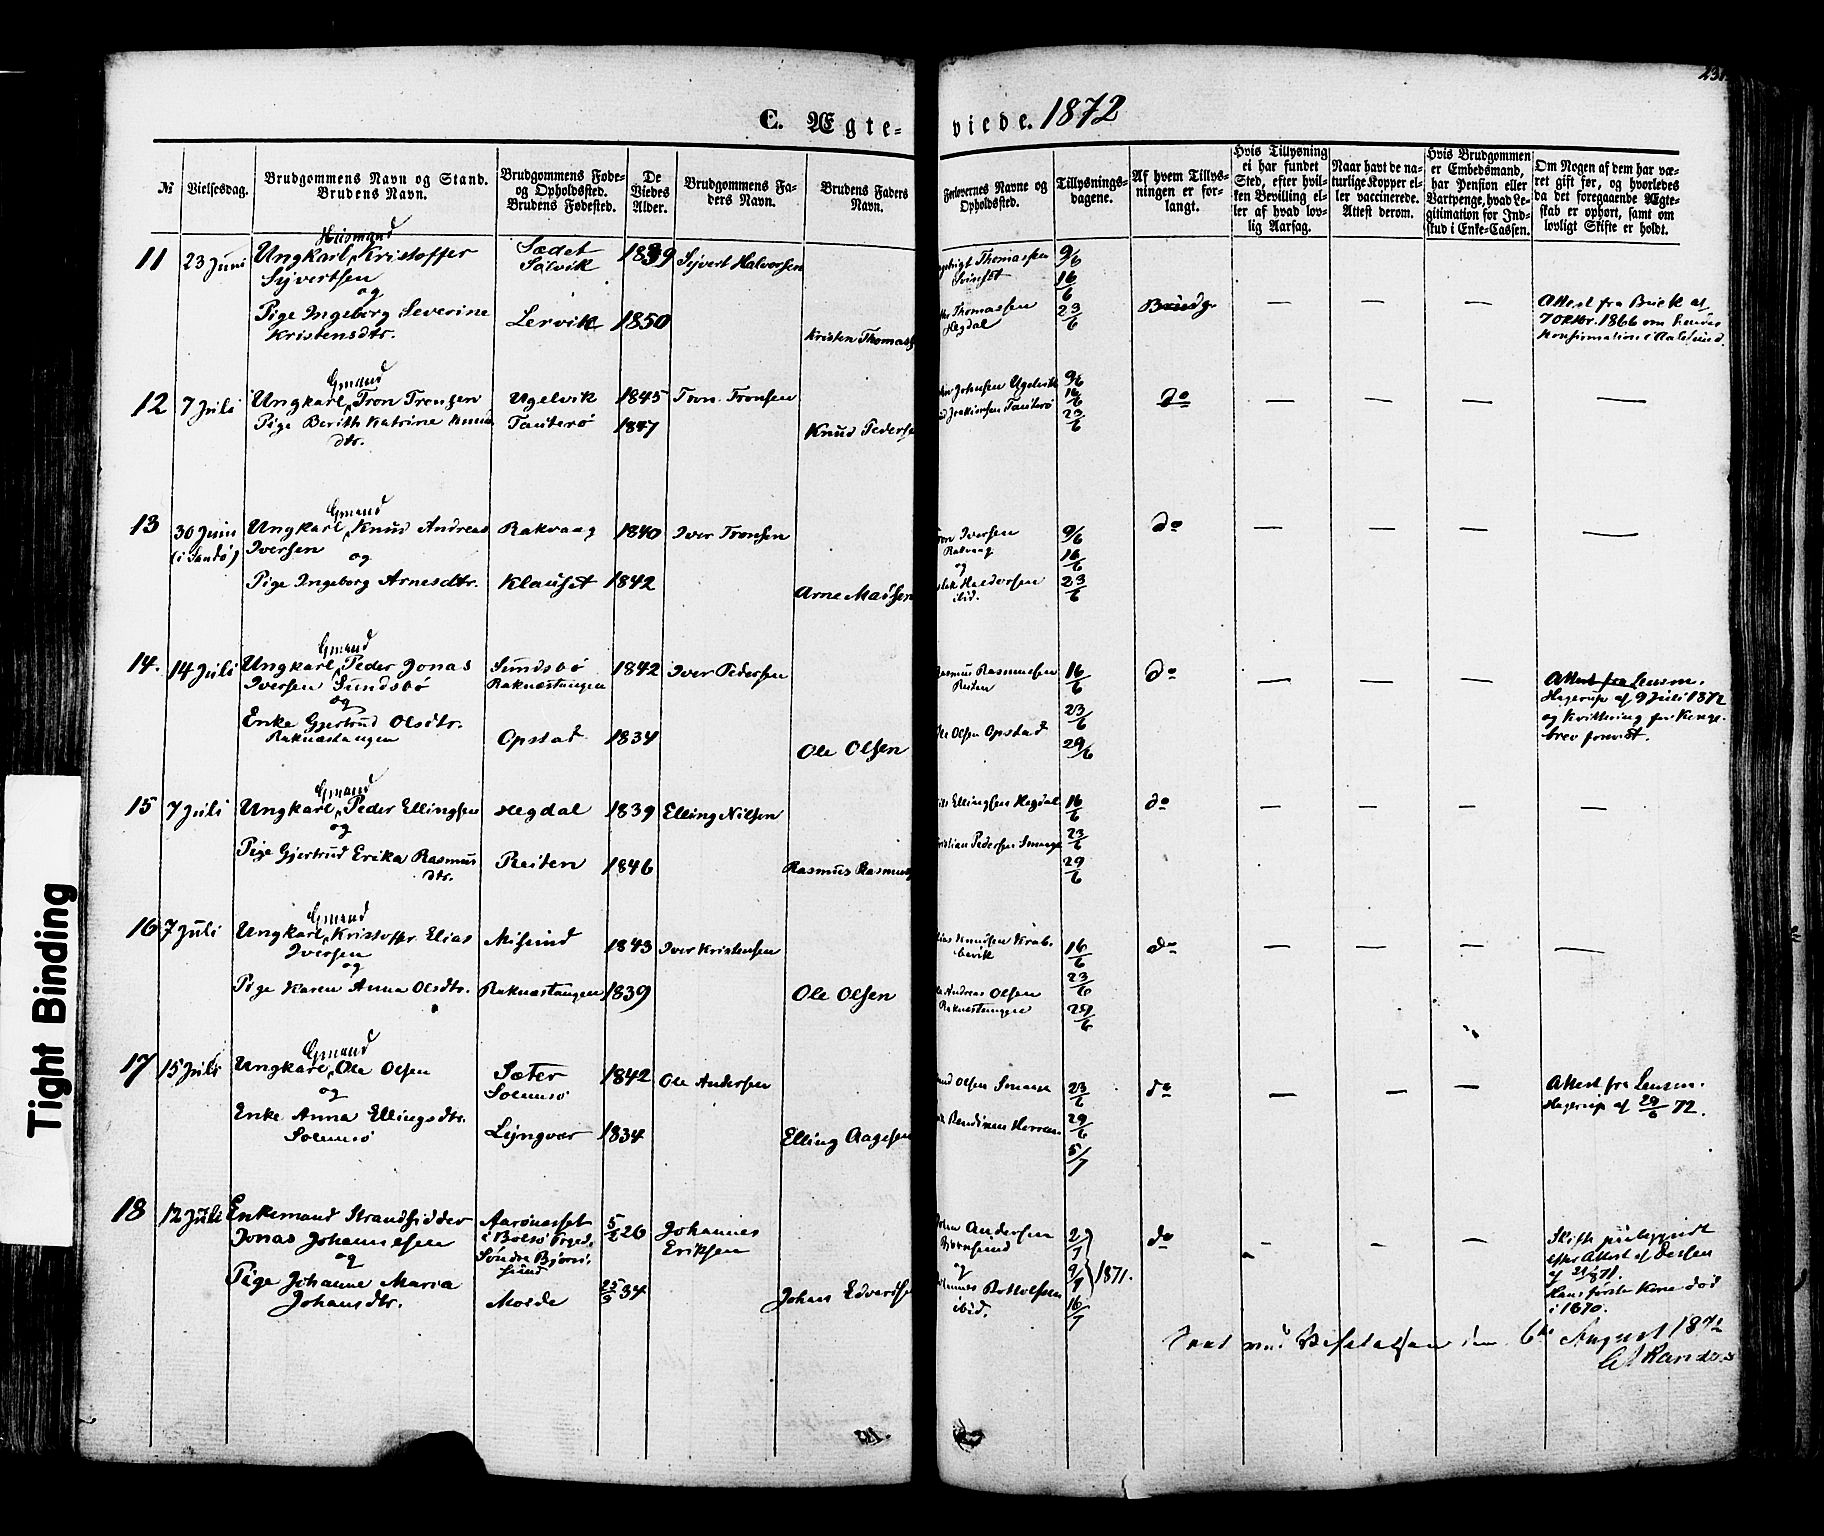 231
C. Ægte-viede. 1872
№
Vielsesdag.
Brudgommens Navn og Stand.
Brudens Navn.
Brudgommens Føde-
og Opholdssted.
Brudens Fødested.
De
Viedes
Alder.
Brudgommens Fa-
ders Navn.
Brudens Faders
Navn.
Forlovernes Navne og
Opholdssted.
Tillysnings-
dagene.
Af hvem Tillys-
ningen er for-
langt.
Hvis Tillysning
ei har fundet
Sted, efter hvil-
ken Bevilling el-
ler af hvad lov-
lig Aarsag.
Naar havt de na-
turlige Kopper el-
ler vaccinerede.
Attest derom.
Hvis Brudgommen
er Embedsmand,
har Pension eller
Vartpenge, hvad Le-
gitimation for Ind-
skud i Enke-Cassen.
Om Nogen af dem har væ-
ret gift før, og hvorledes
da det foregaaende Ægte-
skab er ophørt, samt om
lovligt Skifte er holdt.
11
23 Juni
Husmand
Ungkarl, Kristoffer
Sivertsen
og
Pige Ingeborg Severine
Kristensdtr.
Sædet
Sølvik
Lervik
1839
1850
Sivert Halvorsen
Kristen Thomass
Thomassen
Thomassen
Hegdal
9/6
16/6
23/6
Brudg.
Attest fra Buck af
7 Oktbr. 1866 om hendes
Konfirmation i Aalesund.
12
7 Juli
Gmand
Ungkarl, Tron Tronsen
Pige Berith Katrine Knuds
dtr.
Ugelvik
Tauterø
1845
1847
Tron Tronsen
Knud Peders
Johnsen Ugelvik
Joakimsen Tauterø
9/6
16/6
23/6
do
13
30 Juni
(i Sandø)
Gmand
Ungkarl, Knud Andreas
Iversen
og
Pige Ingeborg Arnesdtr.
Rakvaag
Klauset
1840
1842
Iver Tronsen
Arne Madsen
Tron Iversen
Rakvaag
og
Haldorsen
ibid.
9/6
16/6
23/6
do
14.
14 Juli
Gmand
Ungkarl, Peder Jonas
Iversen Sundsbø
og
Enke Gjertrud Olsdtr.
Raknæstangen
Sundsbø
Raknæstangen
Opstad
1842
1834
Iver Pedersen
Ole Olsen
Rasmus Rasmussen
Reiten
Ole Olsen Opstad
16/6
23/6
29/6
do
Attest fra Lensm.
Hagerup af 9 Juli 1872
og Kvittering for
brev forevist.
15
7 Juli
Gmand
Ungkarl, Peder Ellingsen
og
Pige Gjertrud Erika Rasmus
dtr.
Hegdal
Reiten
1839
1846
Elling Nilsen
Rasmus Rasmuss
Ellingsen Hegdal
Kristian Pedersen
16/6
23/6
29/6
do
16
7 Juli
Gmand
Ungkarl, Kristoffer Elias
Iversen
og
Pige Karen Anna Olsdtr.
Misund
Raknæstangen
1843
1839
Iver Kristensen
Ole Olsen
Elias Knudsen Krab-
bevik
Andreas Olsen
Raknæstangen
16/6
23/6
29/6
do
17
15 Juli
Gmand
Ungkarl, Ole Olsen
og
Enke Anna Ellingsdtr.
Solemsø
Sæter
Solemsø
Lyngvær
1842
1834
Ole Andersen
Elling Aagesen
Olsen
23/6
29/6
5/7
do
Attest fra Lensm.
Hagerup af 29/6 72.
18
12 Juli
Enkemand Strandsidder
Jonas Johannesen
og
Pige Johanne Maria
Johansdtr.
Aarønæsset
i Bolsø Præg.
Søndre Bjørn-
sund
Molde
5/2 26
25/3 34
Johannes
Eriksen
Johan Edvards
John Andersen
Bjørnsund
og
ibid.
2/7
9/7
16/7
1871.
do
Skifte paabegyndt
efter Attest af
af 21/8 71.
Hans første Kone død
i 1870.
den 6te August 1872